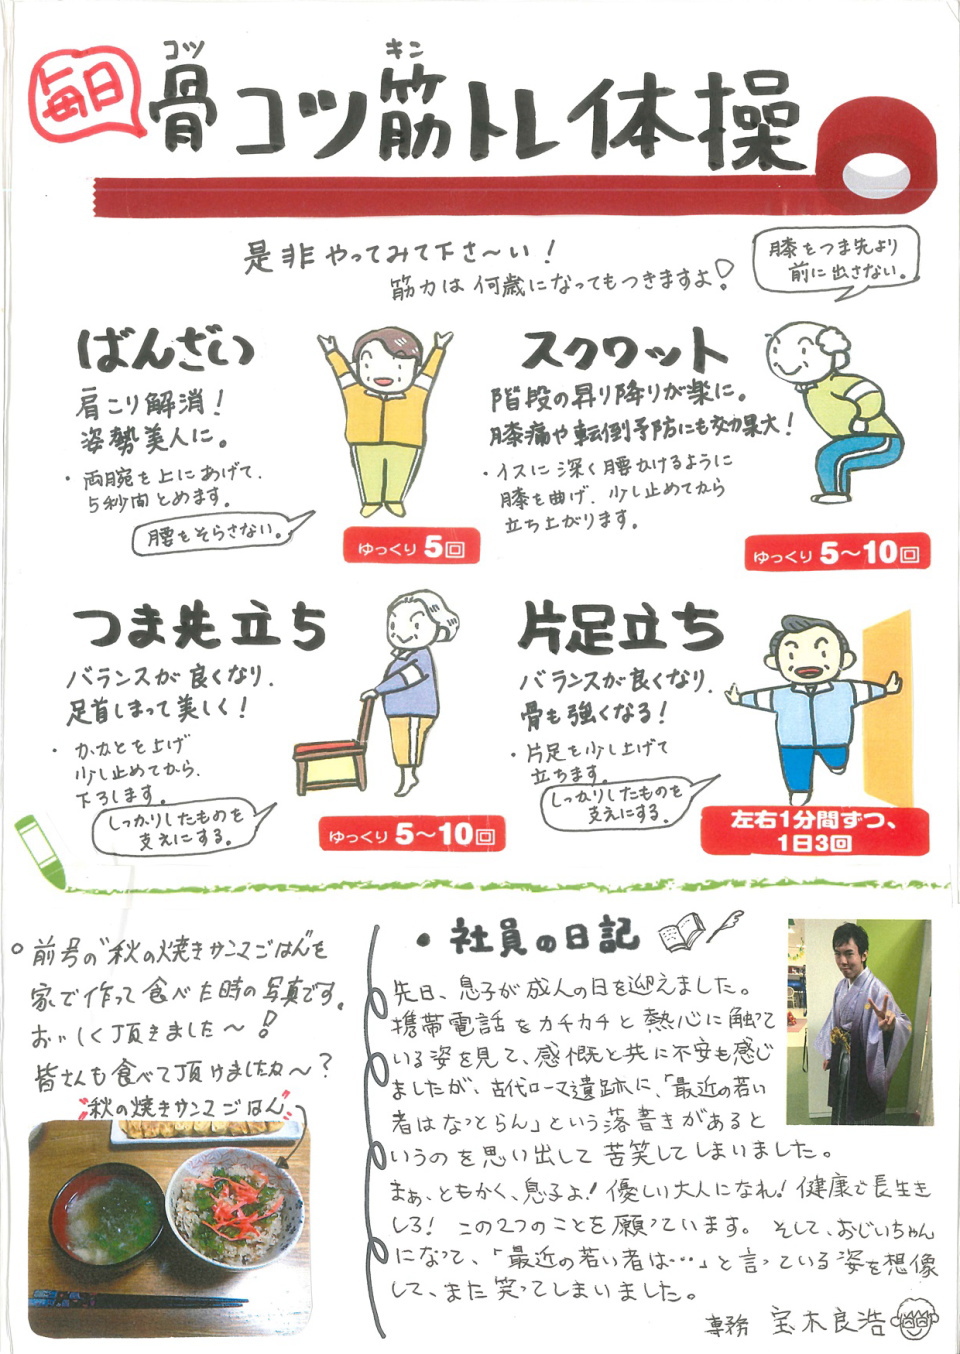 毎日
骨コツ筋トレ体操
コツ
キン
是非やってみて下さ〜い!
筋力は何歳になってもつきますよ!
膝をつま先より
前に出さない。
ばんざい
肩こり解消!
姿勢美人に。
・両腕を上にあげて、
5秒間とめます。
腰をそらさない。
ゆっくり5回
スクワット
階段の昇り降りが楽に。
膝痛や転倒予防にも効果大!
・イスに深く腰かけるように
膝を曲げ、少し止めてから
立ち上がります。
ゆっくり5〜10回
つま先立ち
バランスが良くなり、
足首しまって美しく!
・かかとを上げ
少し止めてから、
下ろします。
しっかりしたものを
支えにする。
ゆっくり5〜10回
片足立ち
バランスが良くなり、
骨も強くなる!
・片足を少し上げて
立ちます。
しっかりしたものを
支えにする。
左右1分間ずつ、
1日3回
○前号の"秋の焼きサンマごはん"を
家で作って食べた時の写真です。
おいしく頂きました〜!
皆さんも食べて頂けましたね〜?
秋の焼きサンマごはん
・社員の日記
先日、息子が成人の日を迎えました。
携帯電話をカチカチと熱心に触って
いる姿を見て、感慨と共に不安も感じ
ましたが、古代ローマ遺跡に、「最近の若い
者はなっとらん」という落書きがあると
いうのを思い出して苦笑してしまいました。
まぁ、ともかく、息子よ!優しい大人になれ!健康で長生き
しろ! この2つのことを願っています。そして、おじいちゃん
になって、「最近の若い者は…」と言っている姿を想像
して、また笑ってしまいました。
専務 宝木良浩